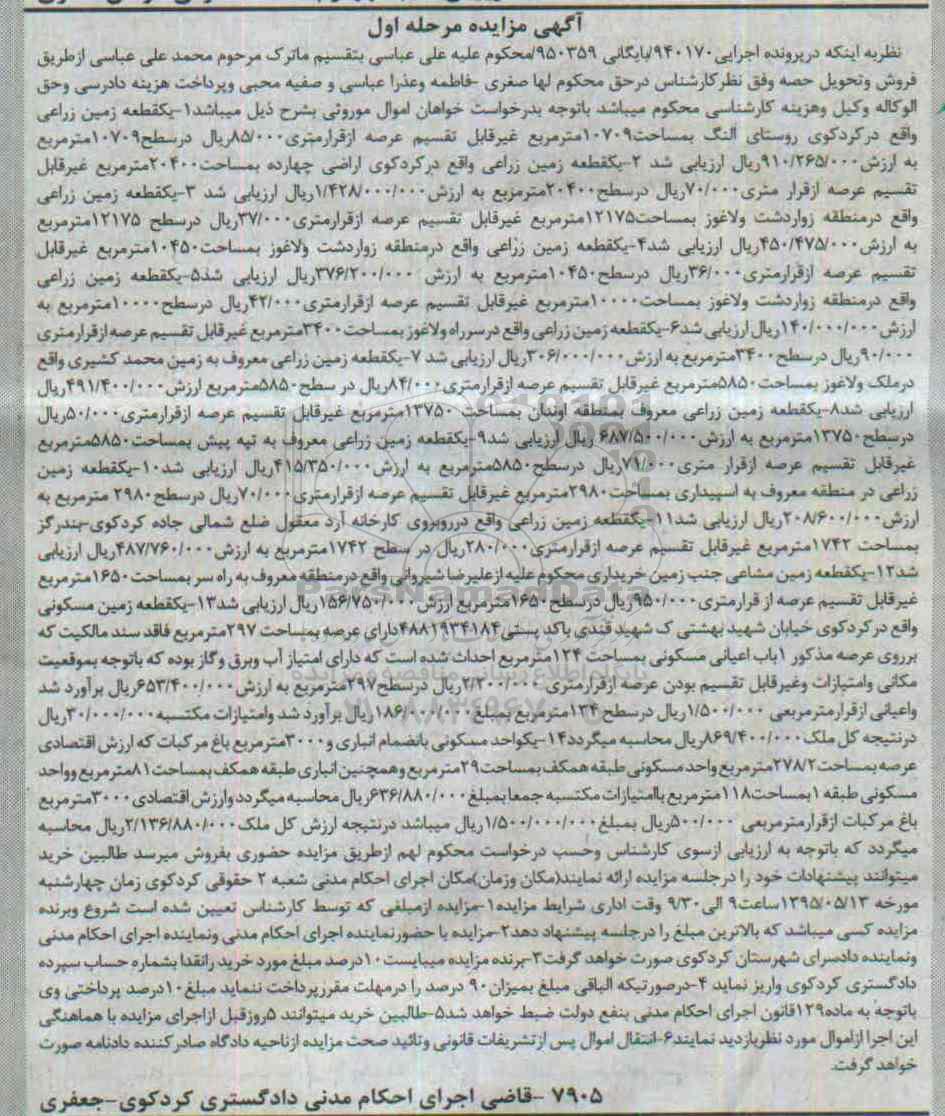 آگهی مزایده مرحله اول
نظربه اینکه درپرونده اجرایی۹۴۰۱۷۰بایگانی ۹۵۰۳۵۹محکوم علیه علی عباسی بتقسیم ماترک مرحوم محمد علی عباسی ازطریق
فروش وتحویل حصه وفق نظرکارشناس درحق محکوم لها صغری -فاطمه وعذرا عباسی و صفیه محبی وپرداخت هزینه دادرسی وحق
الوکاله وکیل وهزینه کارشناسی محکوم میباشد باتوجه بدرخواست خواهان اموال موروثی بشرح ذیل میباشد۱-یکقطعه زمین زراعی
واقع درکردکوی روستای النگ بمساحت۱۰۷۰۹مترمربع غیرقابل تقسیم عرصه ازقرارمتری۸۵/۰۰۰ریال درسطح۱۰۷۰۹مترمربع
به ارزش۹۱۰/۲۶۵/۰۰۰ریال ارزیابی شد ۲-یکقطعه زمین زراعی واقع درکردکوی اراضی چهارده بمساحت۲۰۴۰۰مترمربع غیرقابل
تقسیم عرصه ازقرار متری۷۰/۰۰۰ریال درسطح۲۰۴۰۰مترمربع به ارزش۱/۴۲۸/۰۰۰/۰۰۰ریال ارزیابی شد ۳-یکقطعه زمین زراعی
واقع درمنطقه زواردشت ولاغوز بمساحت۱۲۱۷۵مترمربع غیرقابل تقسیم عرصه ازقرارمتری۳۷/۰۰۰ریال درسطح ۱۲۱۷۵مترمربع
به ارزش۴۵۰/۴۷۵/۰۰۰ریال ارزیابی شد۴-یکقطعه زمین زراعی واقع درمنطقه زواردشت ولاغوز بمساحت۱۰۴۵۰مترمربع غیرقابل
تقسیم عرصه ازقرارمتری۳۶/۰۰۰ریال درسطح۱۰۴۵۰مترمربع به ارزش ۳۷۶/۲۰۰/۰۰۰ریال ارزیابی شد۵-یکقطعه زمین زراعی
واقع درمنطقه زواردشت ولاغوز بمساحت۱۰۰۰۰مترمربع غیرقابل تقسیم عرصه ازقرارمتری۴۲/۰۰۰ریال درسطح۱۰۰۰۰مترمربع به
ارزش۱۴۰/۰۰۰/۰۰۰ریال ارزیابی شد۶-یکقطعه زمین زراعی واقع درسرراه ولاغوز بمساحت۳۴۰۰مترمربع غیرقابل تقسیم عرصه ازقرارمتری
۹۰/۰۰۰ریال درسطح۳۴۰۰مترمربع به ارزش۳۰۶/۰۰۰/۰۰۰ریال ارزیابی شد ۷-یکقطعه زمین زراعی معروف به زمین محمد کشیری واقع
درملک ولاغوز بمساحت۵۸۵۰مترمربع غیرقابل تقسیم عرصه ازقرارمتری۸۴/۰۰۰ریال در سطح۵۸۵۰مترمربع ارزش۴۹۱/۴۰۰/۰۰۰ریال
ارزیابی شد۸-یکقطعه زمین زراعی معروف بمنطقه اوبندان بمساحت ۱۳۷۵۰مترمربع غیرقابل تقسیم عرصه ازقرارمتری۵۰/۰۰۰ریال
درسطح۱۳۷۵۰مترمربع به ارزش۶۸۷/۵۰۰/۰۰۰ ریال ارزیابی شد۹-یکقطعه زمین زراعی معروف به تپه پیش بمساحت۵۸۵۰مترمربع
غیرقابل تقسیم عرصه ازقرار متری۷۱/۰۰۰ریال درسطح۵۸۵۰مترمربع به ارزش۴۱۵/۳۵۰/۰۰۰ریال ارزیابی شد۱۰-یکقطعه زمین
زراعی در منطقه معروف به اسپیداری بمساحت۲۹۸۰مترمربع غیرقابل تقسیم عرصه ازقرارمتری۷۰/۰۰۰ریال درسطح۲۹۸۰ مترمربع به
ارزش۲۰۸/۶۰۰/۰۰۰ریال ارزیابی شد۱۱-یکقطعه زمین زراعی واقع درروبروی کارخانه آرد معقول ضلع شمالی جاده کردکوی-بندرگز
بمساحت ۱۷۴۲مترمربع غیرقابل تقسیم عرصه ازقرارمتری۲۸۰/۰۰۰ریال در سطح ۱۷۴۲مترمربع به ارزش۴۸۷/۷۶۰/۰۰۰ریال ارزیابی
شد۱۲-یکقطعه زمین مشاعی جنب زمین خریداری محکوم علیه ازعلیرضا شیروانی واقع درمنطقه معروف به راه سر بمساحت۱۶۵۰مترمربع
غیرقابل تقسیم عرصه از قرارمتری۹۵۰/۰۰۰ریال درسطح۱۶۵۰مترمربع ارزش۱۵۶/۷۵۰/۰۰۰ریال ارزیابی شد۱۳-یکقطعه زمین مسکونی
واقع درکردکوی خیابان شهید بهشتی ک شهید قندی باکد پستی۴۸۸۱۹۳۴۱۸۴دارای عرصه بمساحت ۲۹۷مترمربع فاقد سند مالکیت که
برروی عرصه مذکور ۱باب اعیانی مسکونی بمساحت ۱۲۴مترمربع احداث شده است که دارای امتیاز آب وبرق وگاز بوده که باتوجه بموقعیت
مکانی وامتیازات وغیرقابل تقسیم بودن عرصه ازقرارمتری۲/۲۰۰/۰۰۰ریال درسطح۲۹۷مترمربع به ارزش۶۵۳/۴۰۰/۰۰۰ریال برآورد شد
واعیانی ازقرارمترمربعی ۱/۵۰۰/۰۰۰ریال درسطح۱۳۴مترمربع بمبلغ۱۸۶/۰۰۰/۰۰۰ریال برآورد شد وامتیازات مکتسبه۳۰/۰۰۰/۰۰۰ریال
درنتیجه کل ملک۸۶۹/۴۰۰/۰۰۰ریال محاسبه میگردد۱۴-یکواحد مسکونی بانضمام انباری و۳۰۰۰مترمربع باغ مرکبات که ارزش اقتصادی
عرصه بمساحت۲۷۸/۲مترمربع واحد مسکونی طبقه همکف بمساحت۲۹مترمربع وهمچنین انباری طبقه همکف بمساحت۸۱مترمربع وواحد
مسکونی طبقه ۱بمساحت۱۱۸مترمربع باامتیازات مکتسبه جمعا بمبلغ۶۳۶/۸۸۰/۰۰۰ریال محاسبه میگردد وارزش اقتصادی ۳۰۰۰مترمربع
باغ مرکبات ازقرارمترمربعی ۵۰۰/۰۰۰ریال بمبلغ۱/۵۰۰/۰۰۰/۰۰۰ریال میباشد درنتیجه ارزش کل ملک۲/۱۳۶/۸۸۰/۰۰۰ریال محاسبه
میگردد که باتوجه به ارزیابی ازسوی کارشناس وحسب درخواست محکوم لهم ازطریق مزایده حضوری بفروش میرسد طالبین خرید
میتوانند پیشنهادات خود را درجلسه مزایده ارائه نمایند(مکان وزمان)مکان اجرای احکام مدنی شعبه ۲ حقوقی کردکوی زمان چهارشنبه
مورخه ۱۳۹۵/۰۵/۱۳ساعت۹ الی۹/۳۰ وقت اداری شرایط مزایده۱-مزایده ازمبلغی که توسط کارشناس تعیین شده است شروع وبرنده
مزایده کسی میباشد که بالاترین مبلغ را درجلسه پیشنهاد دهد۲-مزایده با حضورنماینده اجرای احکام مدنی ونماینده اجرای احکام مدنی
ونماینده دادسرای شهرستان کردکوی صورت خواهد گرفت۳-برنده مزایده میبایست ۱۰درصد مبلغ مورد خرید رانقدا بشماره حساب سپرده
دادگستری کردکوی واریز نماید ۴-درصورتیکه الباقی مبلغ بمیزان۹۰ درصد را درمهلت مقررپرداخت ننماید مبلغ۱۰درصد پرداختی وی
باتوجه به ماده۱۲۹قانون اجرای احکام مدنی بنفع دولت ضبط خواهد شد۵-طالبین خرید میتوانند ۵روزقبل ازاجرای مزایده با هماهنگی
این اجرا ازاموال مورد نظربازدید نمایند۶-انتقال اموال پس ازتشریفات قانونی وتائید صحت مزایده ازناحیه دادگاه صادرکننده دادنامه صورت
خواهد گرفت.
۷۹۰۵ -قاضی اجرای احکام مدنی دادگستری کردکوی-جعفری